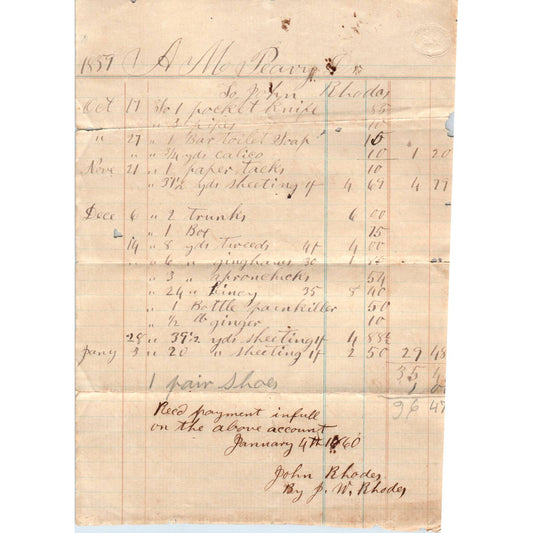 1859 A Mc Peavy Dr
To John Rhodes
Oct 17 To 1 pocket knife 85
" " 2 pipes 10
" 27 " 1 Bar toilet Soap 15
" " 3/4 yds calico 10 1 20
Nove 21 " 1 paper tacks 10
" 37 1/2 yds sheeting 4 69 4 79
Dece 6 " 2 trunks 6 00
" 1 Box 15
14 " 8 yds tweeds 4 00
" 6 " ginghams 30 1
" 3 " apronchicks 54
" 24 " 35 8 40
" 1 Bottle painkiller 50
" 1/2 lb ginger 10
28 " 39 1/2 yds sheeting 4
Jany 3 " 20 " sheeting 2 50 29 48
35
1 pair shoes 1
36 47
Recd payment infull
on the above account
January 4th 1860
John Rhodes
By J. W. Rhodes